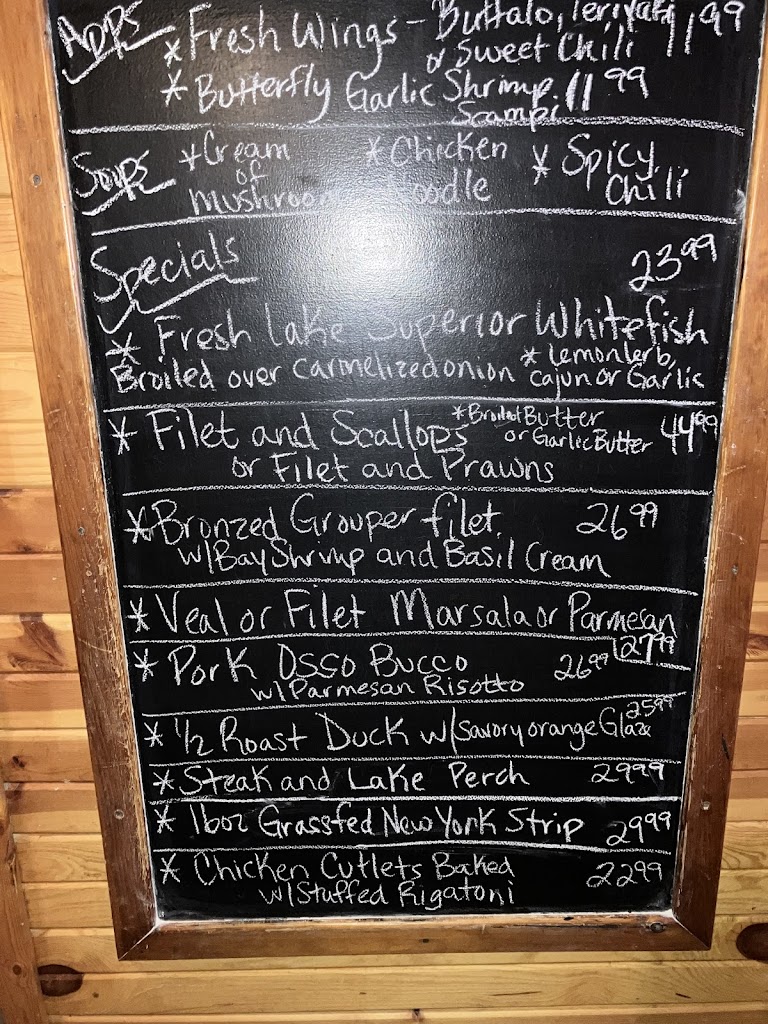 Apps
* Fresh Wings - Buffalo, Teriyaki 11 99
or Sweet Chili
* Butterfly Garlic Shrimp 11 99
Scampi
Soups * Cream of Mushroom * Chicken Noodle * Spicy Chili
Specials 23 99
* Fresh Lake Superior Whitefish
Broiled over carmelized onion * Lemon Herb,
Cajun or Garlic
* Filet and Scallops * Broiled Butter 44 99
or Garlic Butter
or Filet and Prawns
* Bronzed Grouper filet 26 99
w/ Bay Shrimp and Basil Cream
* Veal or Filet Marsala or Parmesan
27 99
* Pork Osso Bucco 26 99
w/ Parmesan Risotto
25 99
* 1/2 Roast Duck w/ Savory orange Glaze
* Steak and Lake Perch 29 99
* 16oz Grassfed New York Strip 29 99
* Chicken Cutlets Baked 22 99
w/ Stuffed Rigatoni